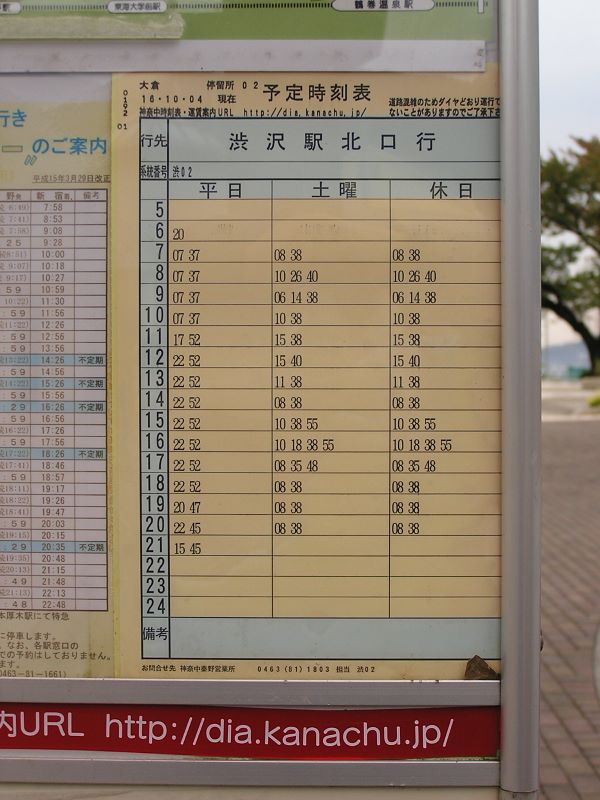 東海大学前駅
鶴巻温泉駅
行き
のご案内
平成15年3月29日改正
野発 新宿着 備考
6:49) 7:58
7:41) 8:53
7:58) 9:08
25 9:28
8:51) 10:00
9:07) 10:18
9:17) 10:27
59 10:59
10:22) 11:30
:59 11:56
11:22) 12:26
:59 12:56
:59 13:56
13:22) 14:26 不定期
:59 14:56
14:22) 15:26 不定期
:59 15:56
:29 16:26 不定期
:59 16:56
16:22) 17:26
:59 17:56
17:22) 18:26 不定期
17:41) 18:46
:59 18:57
18:11) 19:17
18:22) 19:26
18:41) 19:47
:59 20:03
19:15) 20:15
:29 20:35 不定期
19:35) 20:48
20:13) 21:15
:49 21:48
21:13) 22:13
:48 22:48
本厚木駅にて特急
に停車します。
なお、各駅窓口の
での予約はしておりません。
ます。
0463-81-1661)
0192
01
大倉 停留所 02 予定時刻表
16-10-04 現在
神奈中時刻表・運賃案内URL http://dia.kanachu.jp/
道路混雑のためダイヤどおり運行で
ないことがありますのでご了承下さ
行先 渋沢駅北口行
系統番号 渋02
平日 土曜 休日
5
6 20
7 07 37 08 38 08 38
8 07 37 10 26 40 10 26 40
9 07 37 06 14 38 06 14 38
10 07 37 10 38 10 38
11 17 52 15 38 15 38
12 22 52 15 40 15 40
13 22 52 11 38 11 38
14 22 52 08 38 08 38
15 22 52 10 38 55 10 38 55
16 22 52 10 18 38 55 10 18 38 55
17 22 52 08 35 48 08 35 48
18 22 52 08 38 08 38
19 20 47 08 38 08 38
20 22 45 08 38 08 38
21 15 45
22
23
24
備考
お問合せ先 神奈中秦野営業所 0463 (81) 1803 担当 渋02
内URL http://dia.kanachu.jp/